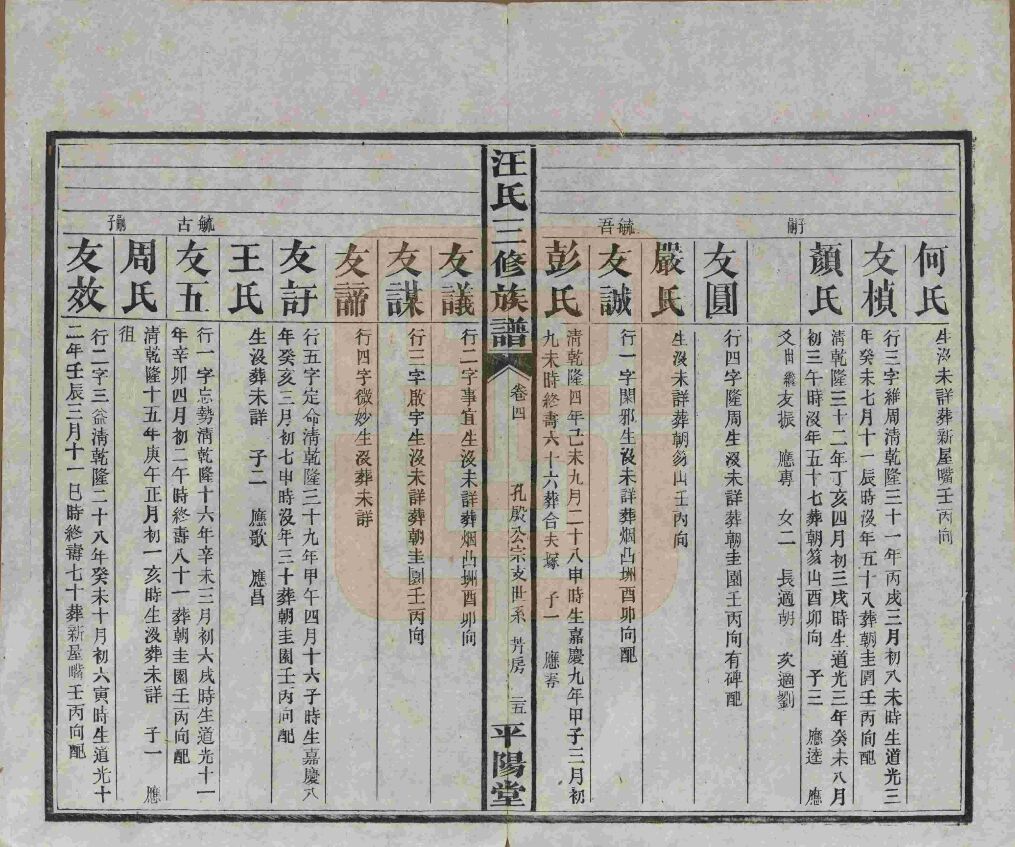 何氏
生沒未詳葬新屋嘴壬丙向
友楨
行三字維周清乾隆三十一年丙戌三月初八未時生道光三
年癸未七月十一辰時沒年五十八葬朝圭園壬丙向配
子嗣
顏氏
清乾隆三十二年丁亥四月初三戌時生道光三年癸未八月
初三午時沒年五十七葬朝笏山酉卯向 子三 應逵 應
友振 應專 女二 長適胡 次適劉
友圓
行四字隆周生沒未詳葬朝圭園壬丙向有碑配
嚴氏
生沒未詳葬朝笏山壬丙向
毓吾
友誠
行一字閑邪生沒未詳葬烟凸坳酉卯向配
彭氏
清乾隆四年己未九月二十八申時生嘉慶九年甲子三月初
九未時終壽六十六葬合夫塚 子一 應
汪氏三修族譜
卷四
孔殷公宗支世系 房 三五
平陽堂
友議
行二字事宜生沒未詳葬烟凸坳酉卯向
友謀
行三字啟宇生沒未詳葬朝圭園壬丙向
友諦
行四字微妙生沒葬未詳
友訏
行五字定命清乾隆三十九年甲午四月十六子時生嘉慶八
年癸亥三月初七申時沒年三十葬朝圭園壬丙向配
王氏
生沒葬未詳 子二 應歌 應昌
毓古
友五
行一字忘勢清乾隆十六年辛未三月初六戌時生道光十一
年辛卯四月初二午時終壽八十一葬朝圭園壬丙向配
嗣子
周氏
清乾隆十五年庚午正月初一亥時生沒葬未詳 子一 應
徂
友效
行二字三益清乾隆二十八年癸未十月初六寅時生道光十
二年壬辰三月十一巳時終壽七十葬新屋嘴壬丙向配